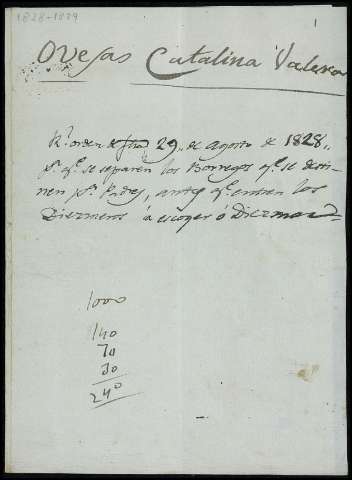 1828-1829
1
Ovejas Catalina Valera
Rl. orden de fha 29,, de Agosto de 1828,,
pa. qe. se separen los Borregos qe. se desti-
nen pa. Padres, antes qe. entren los
Diezmeros á escoger ó Diezmar
1000
140
70
30
240